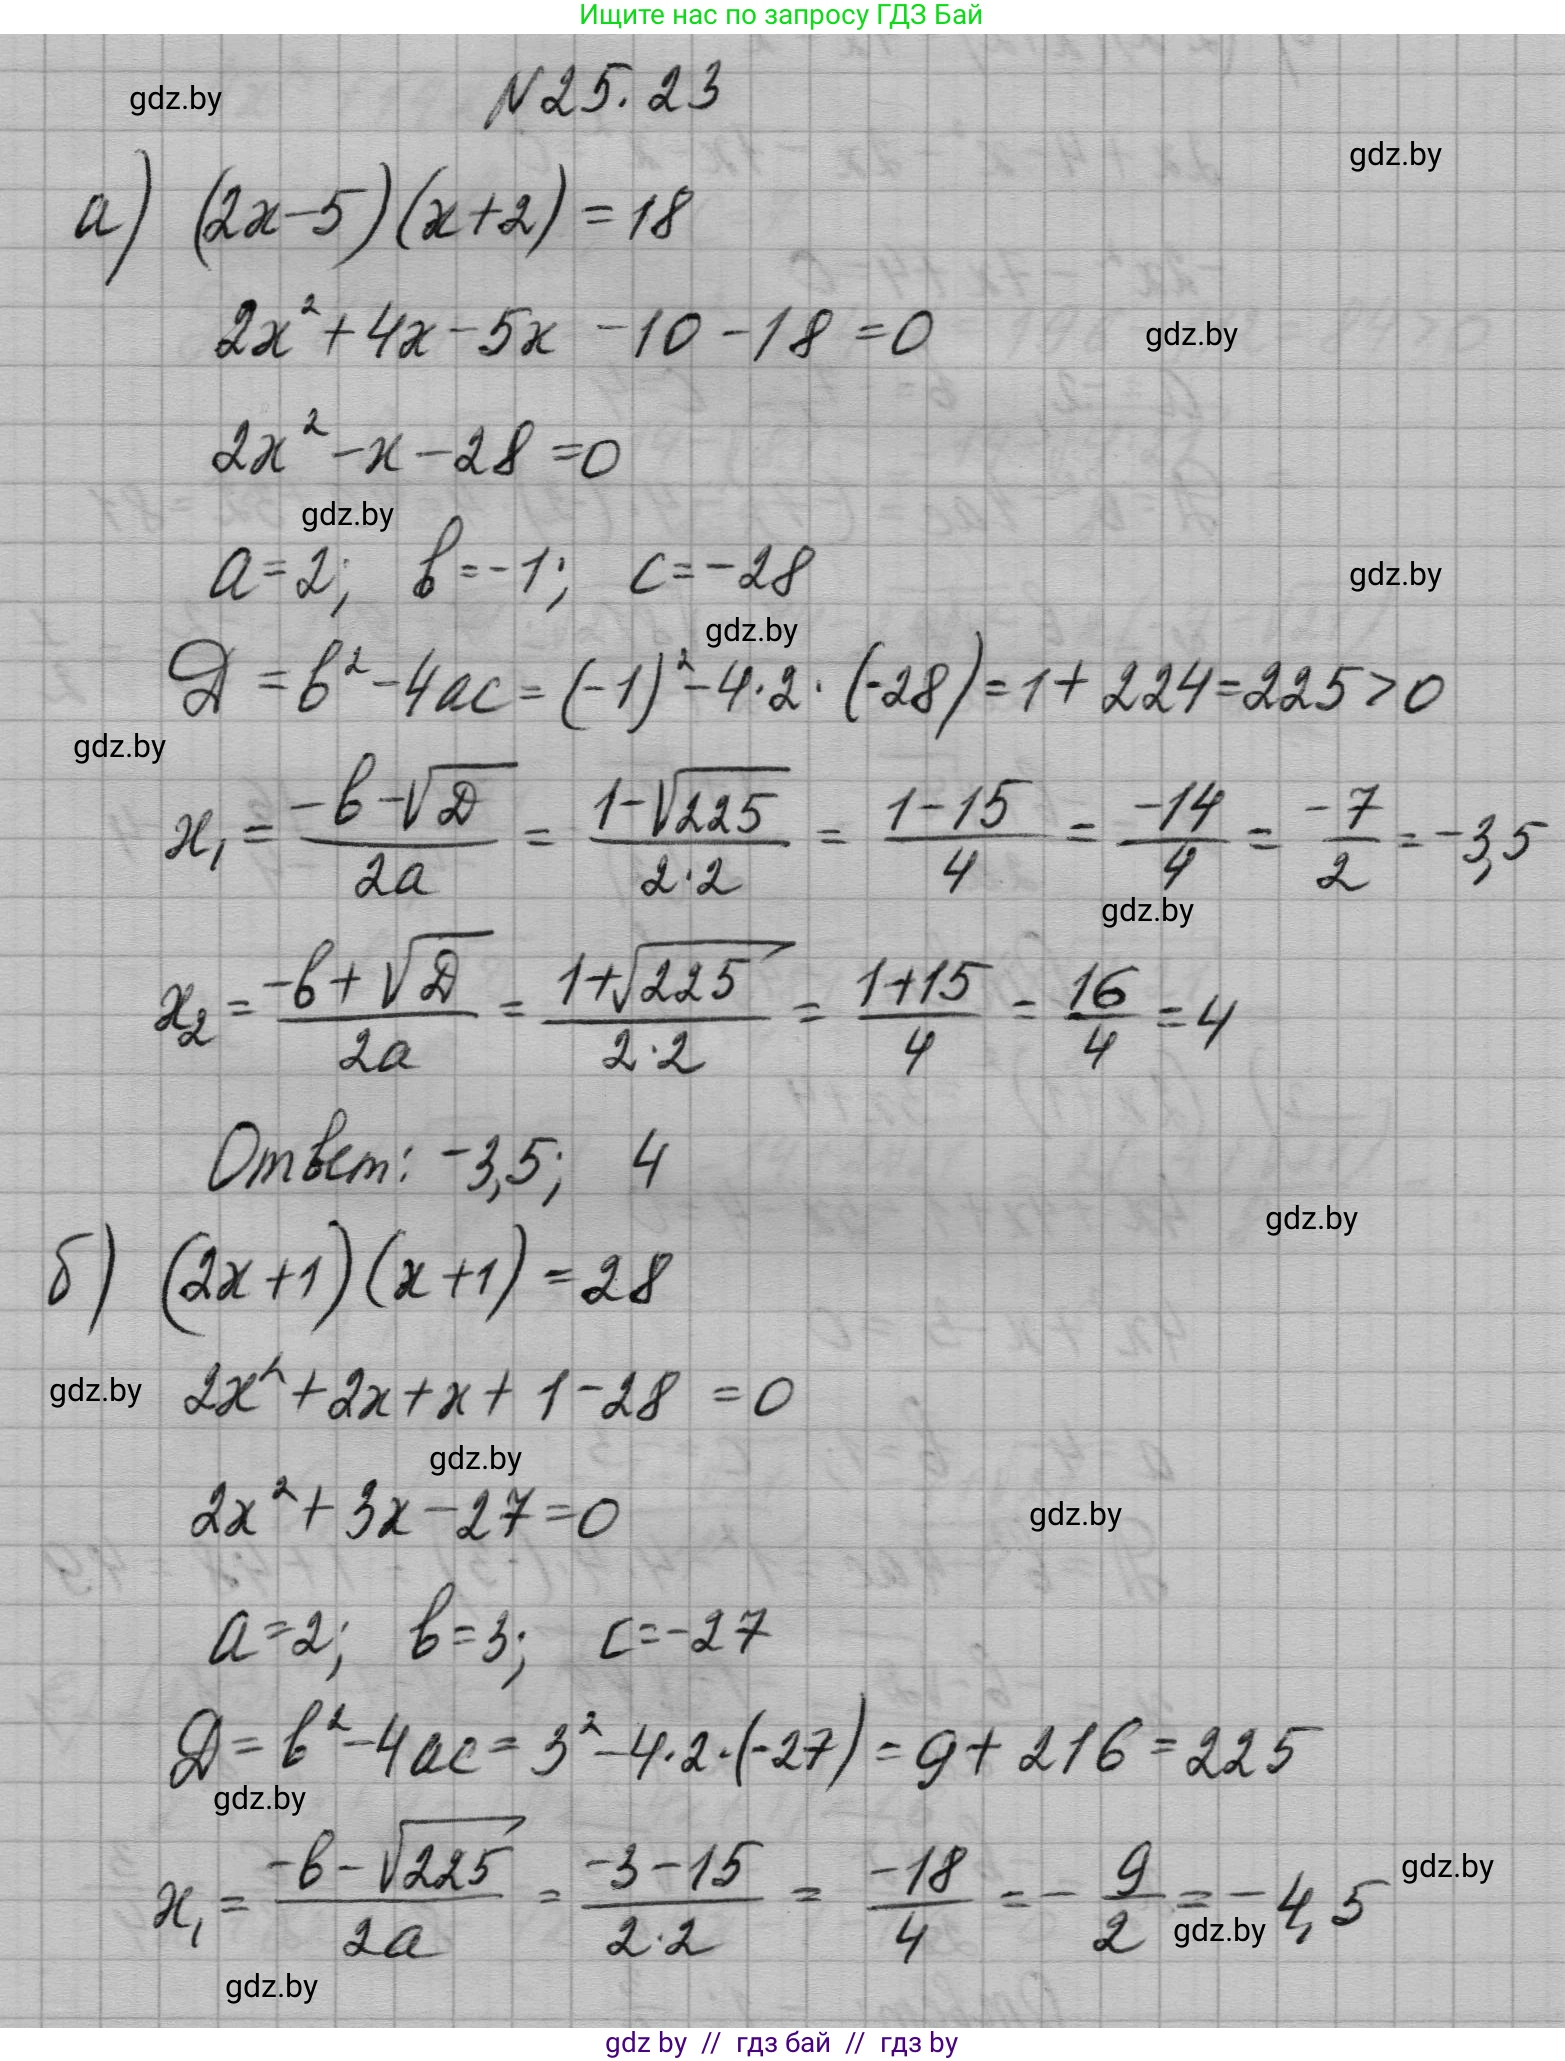 Ищите нас по запросу ГДЗ Бай
N 25.23
gdz.by
gdz.by
а) (2x-5)(x+2)=18
2x²+4x-5x-10-18=0
gdz.by
2x²-x-28=0
gdz.by
a=2; b=-1; c=-28
gdz.by
gdz.by
D=b²-4ac=(-1)²-4·2·(-28)=1+224=225>0
gdz.by
x₁=(-b-√D)/(2a)=(1-√225)/(2·2)=(1-15)/4=-14/4=-7/2=-3,5
gdz.by
x₂=(-b+√D)/(2a)=(1+√225)/(2·2)=(1+15)/4=16/4=4
Ответ: -3,5; 4
gdz.by
б) (2x+1)(x+1)=28
gdz.by
2x²+2x+x+1-28=0
gdz.by
2x²+3x-27=0
gdz.by
a=2; b=3; c=-27
D=b²-4ac=3²-4·2·(-27)=9+216=225
gdz.by
x₁=(-b-√225)/(2a)=(-3-15)/(2·2)=-18/4=-9/2=-4,5
gdz.by
gdz.by
gdz.by
gdz by // гдз бай // гдз by